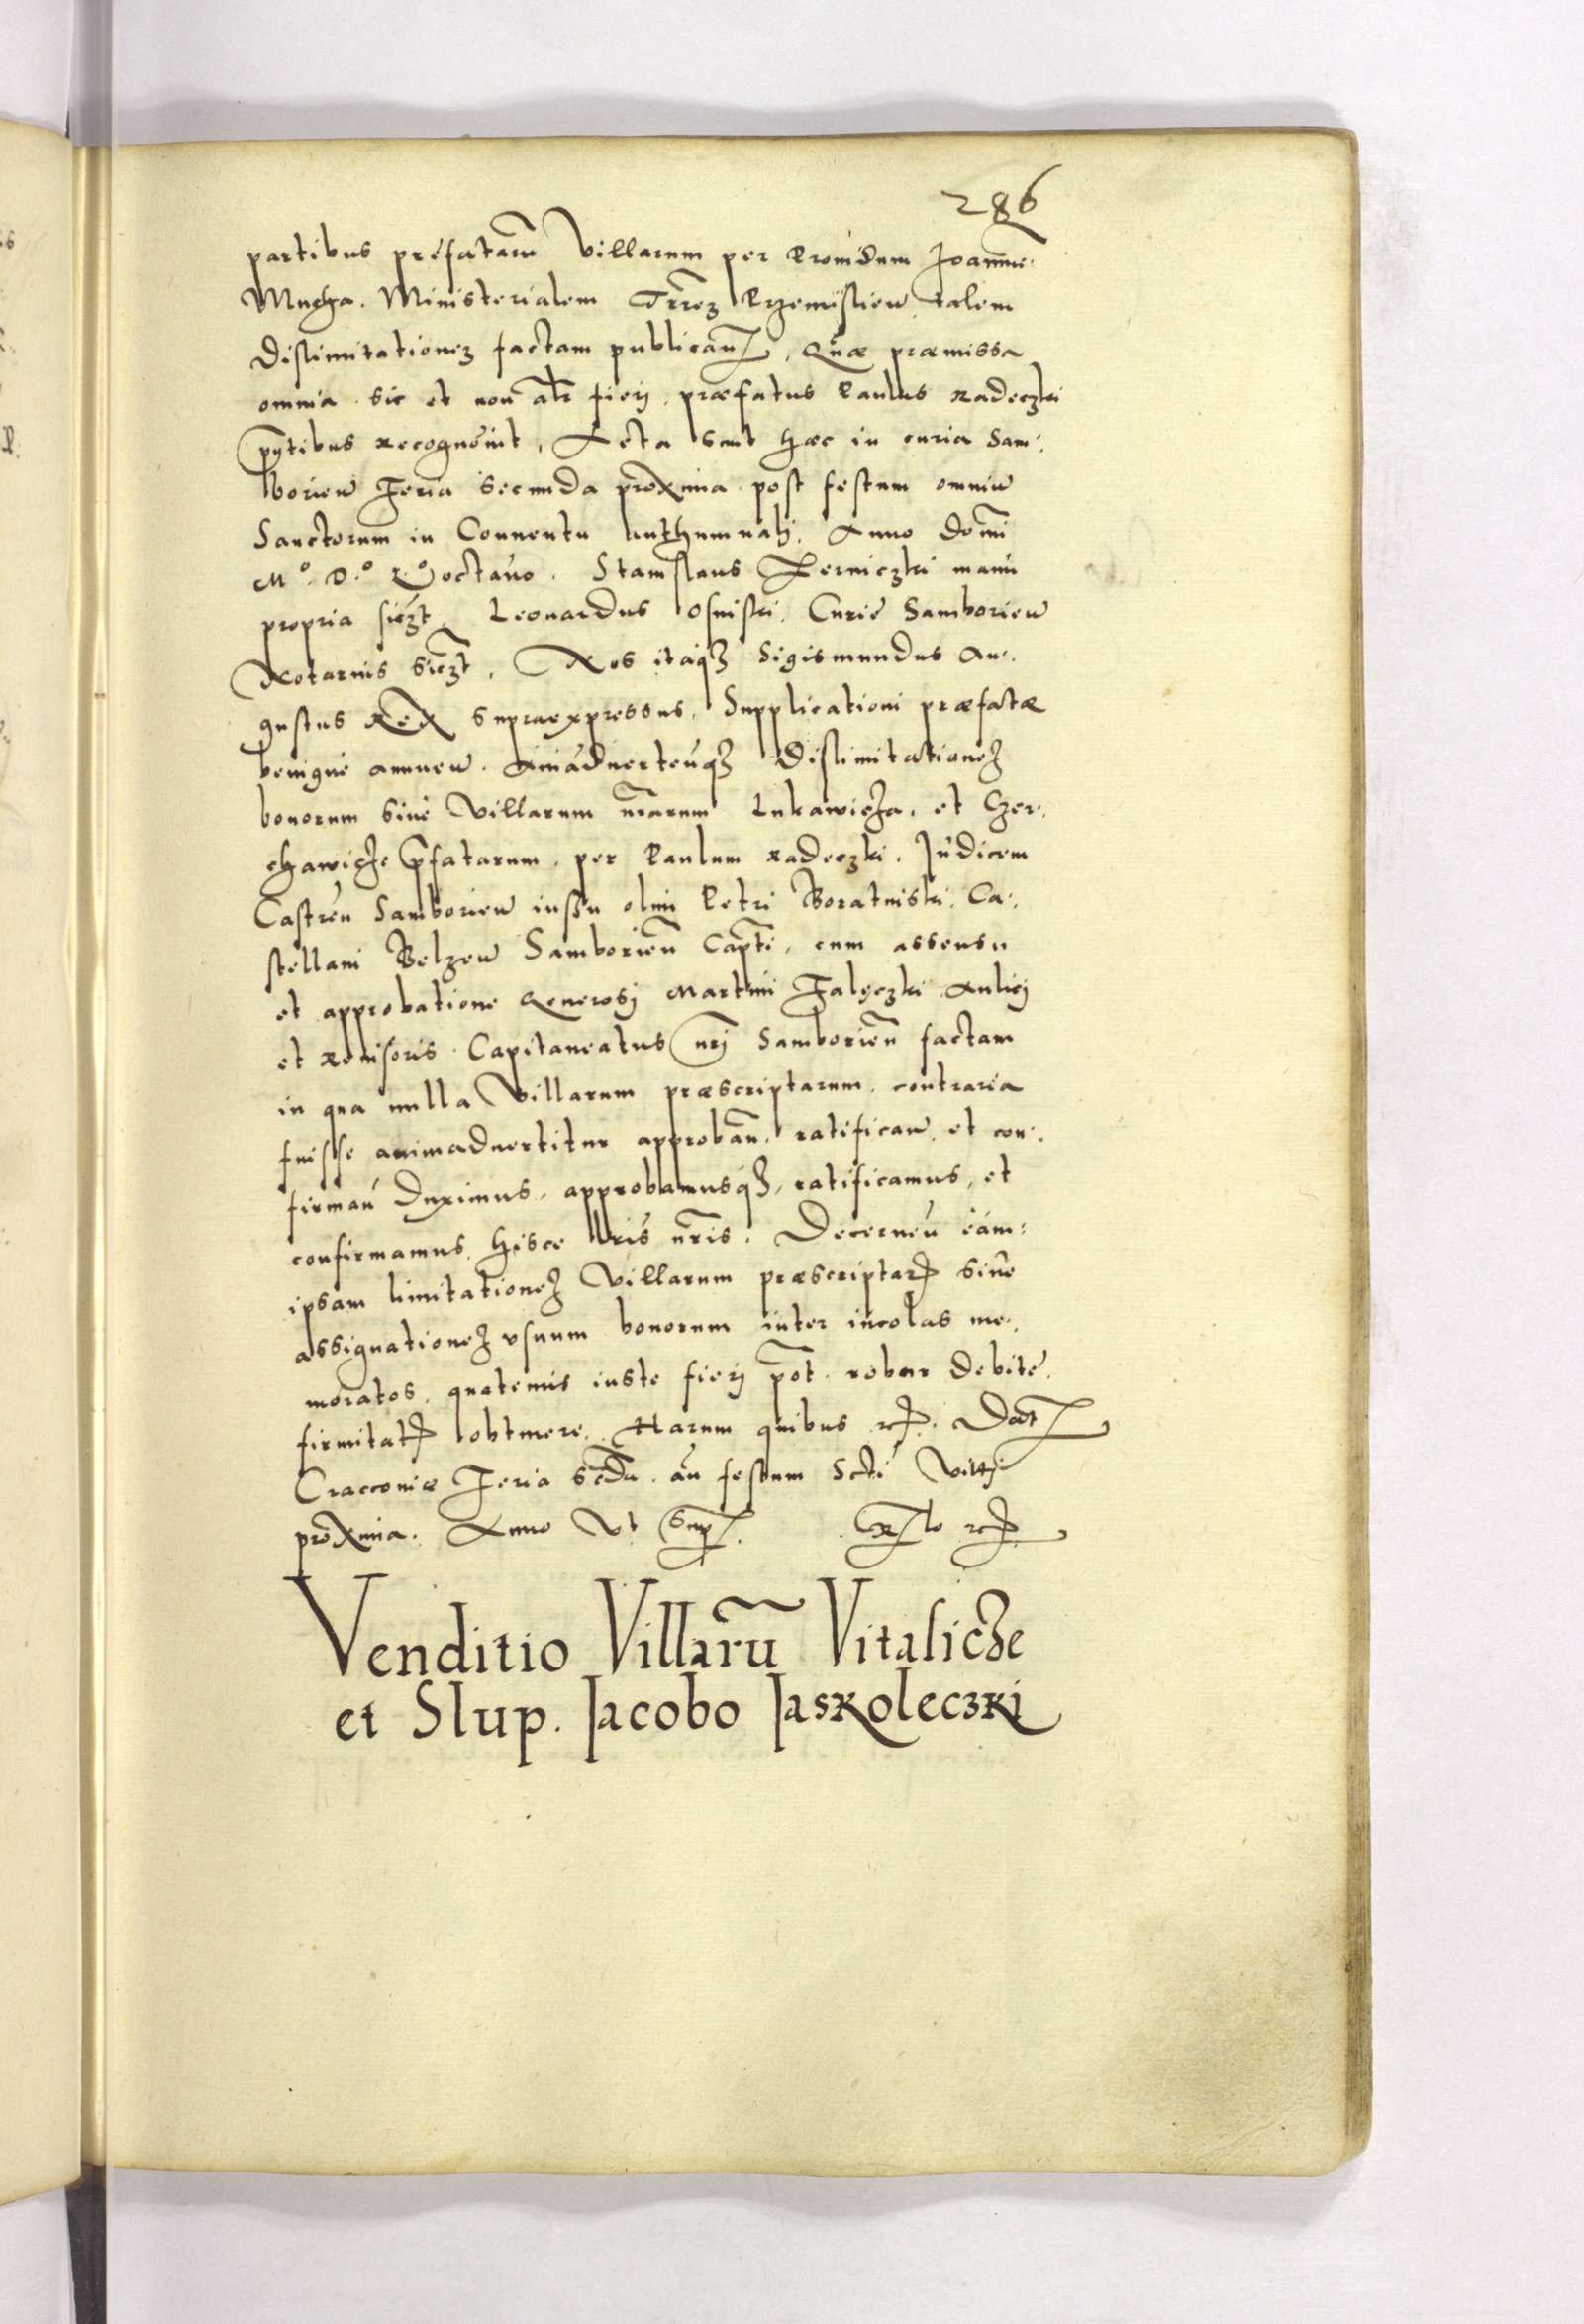 286
partibus prefatarū Villarum per Prouidum Joannē
Mucha. Ministerialem Trrēz Przemislien̄ talem
Dislimitationez factam publican̄, Quæ præmissa
omnia sic et non alr̄ fierj. præfatus Paulus Radeczki
pn̄tibus recognouit, Acta sunt hæc in curia Sam:
borien̄ Feria Secunda proxima post festum omniū
Sanctorum in Conuentu Authumnali. Anno Domī
Mº. D.º Xº octauo. Stanislaus Zerniczki manu
propria sszt. Leonardus Osniski. Curie Samborien̄
Notarius sszt. Nos itaqȝ Sigismundus Au:
gustus Rex supraexpressus, Supplicationi præfatæ
benigne annuen̄. Aniaduertenqȝ Dislimitationeȝ
bonorum siue Villarum nrārum Lukawicza. et Czer:
chawicze p̄fatarum. per Paulum Radeczki. Judicem
Castren̄ Samborien̄ iussu olim Petri Boratinski. Ca:
stellani Belzen̄ Samborien̄ Capt̄i. cum assensu
et approbatione Generosj Martini Faleczki Aulicj
et Reuisoris Capitaneatus nrj̄ Samborien̄ factam
in qua nulla Villarum præscriptarum contraria
fuisse animaduertitur approban̄. ratifican̄. et con:
firman̄ Duximus. approbamusqȝ, ratificamus, et
confirmamus hisce lrīs nrīs. Decernen̄ eam:
ipsam limitationeȝ Villarum præscriptarꝝ siue
assignationeȝ vsuum bonorum inter incolas me:
moratos. quatenus iuste fierj pōt. robur debite
firmitatꝭ obtinere. Harum quibus rꝭ. Dat
Cracouiæ Feria Scd̄a. an̄ festum Scti Vitti
proxima. Anno Vt Sup.
Venditio Villarū Vitalicze
et Slup. Jacobo Jaskoleczki